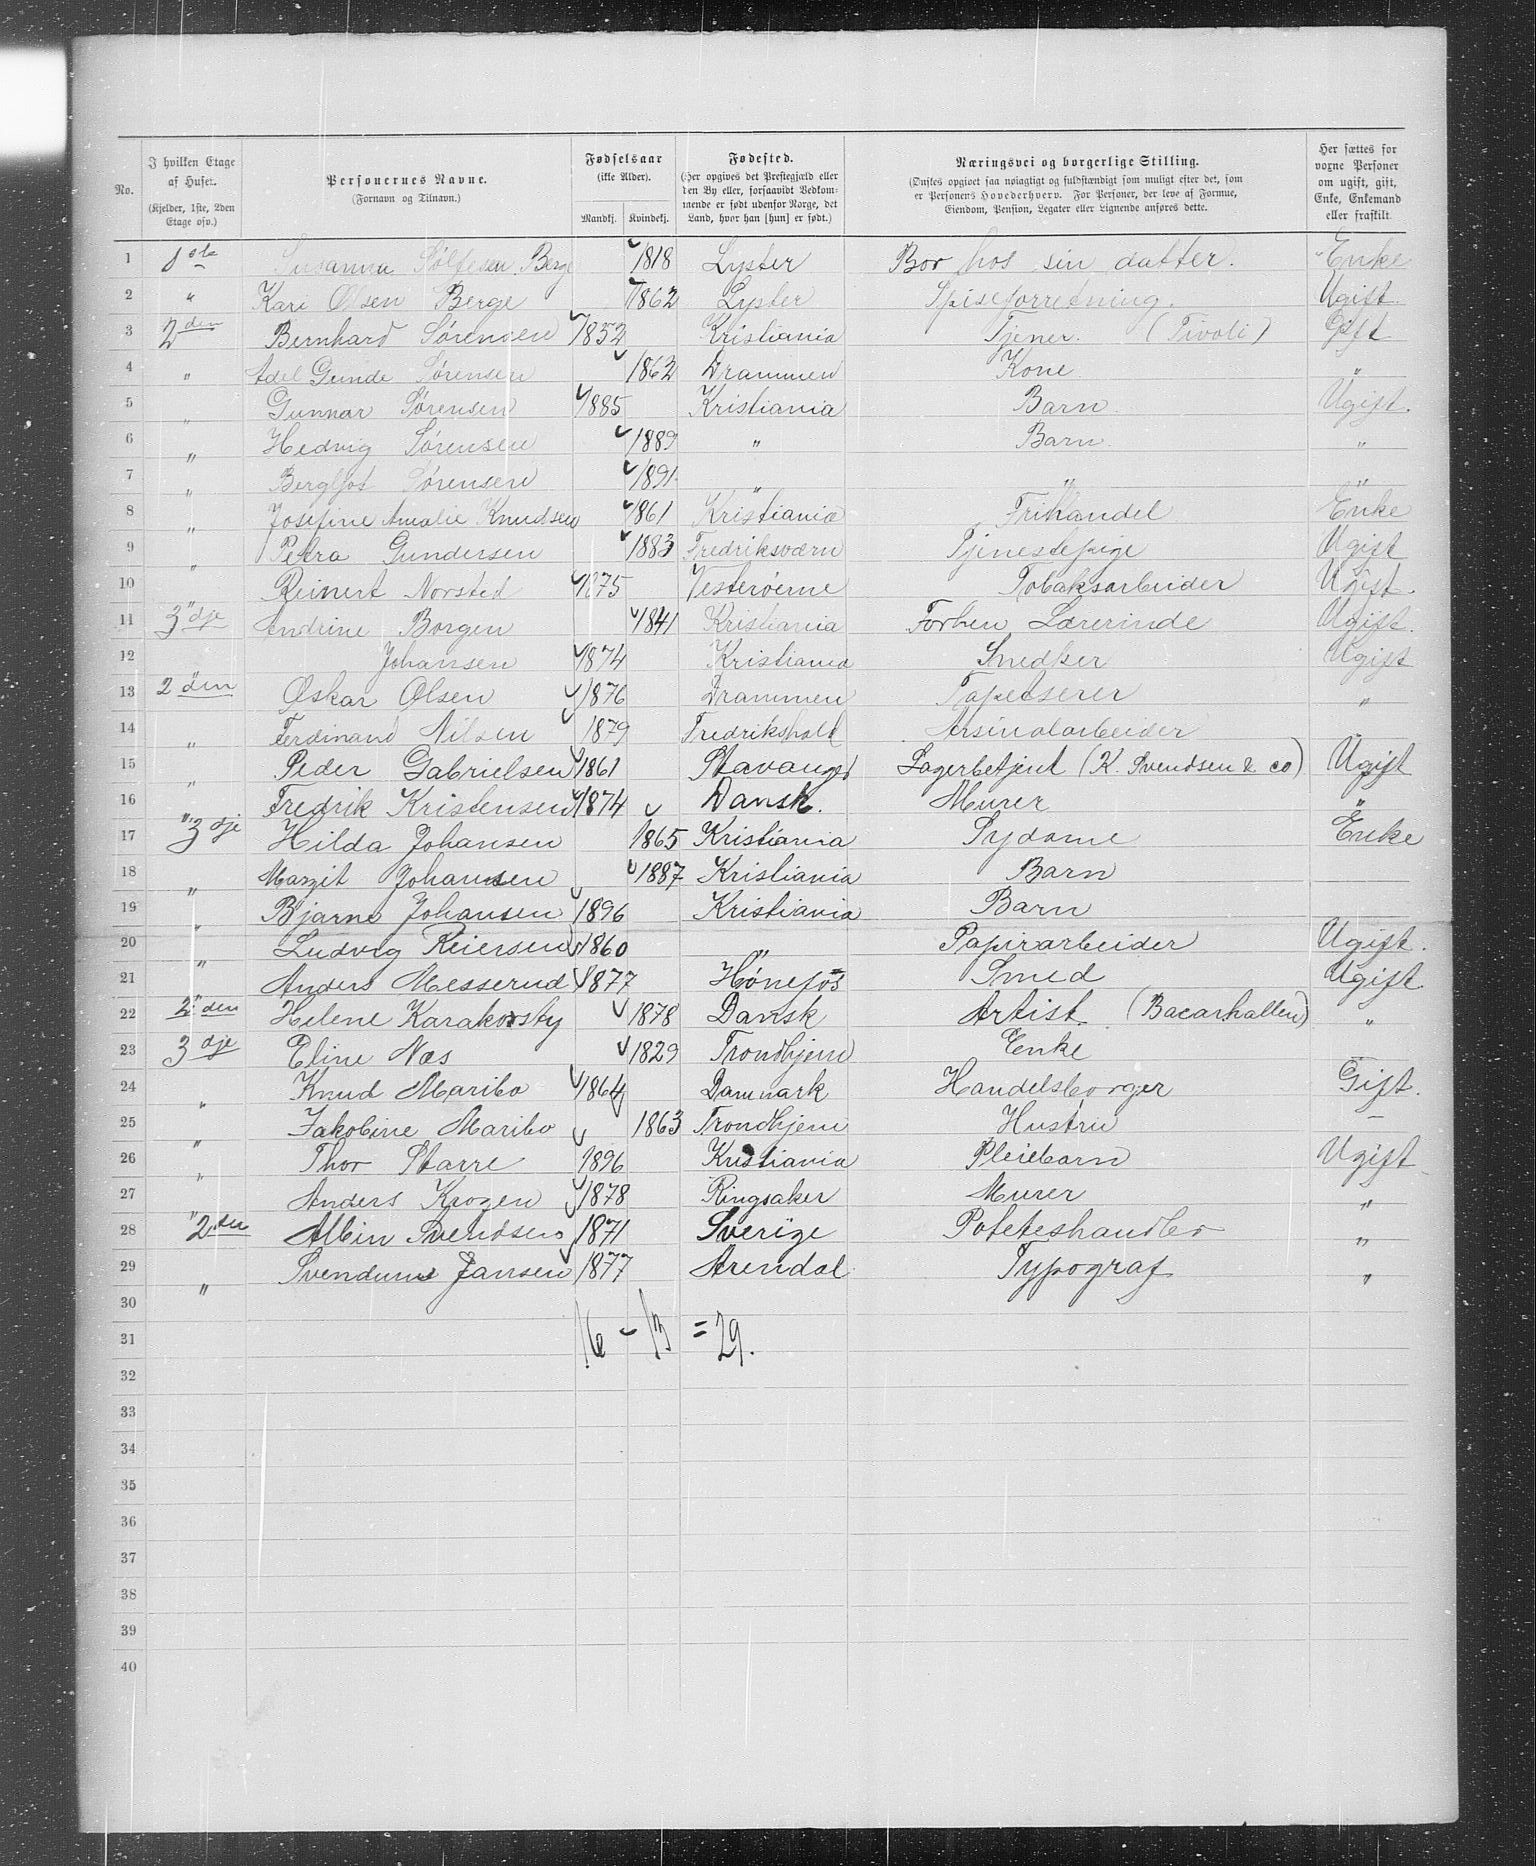 No.
I hvilken Etage af Huset. (Kjelder, 1ste, 2den Etage osv.)
Personernes Navne. (Fornavn og Tilnavn.)
Fødselsaar (ikke Alder). Mandkj. Kvindekj.
Fødested. (Her opgives det Prestegjæld eller den By eller, forsaavidt Vedkommende er født udenfor Norge, det Land, hvor han [hun] er født.)
Næringsvei og borgerlige Stilling. (Ønskes opgivet saa nøiagtigt og fuldstændigt som muligt efter det, som er Personens Hovederhverv. For Personer, der leve af Formue, Eiendom, Pension, Legater eller Lignende anføres dette.
Her sættes for voxne Personer om ugift, gift, Enke, Enkemand eller fraskilt.
1 1ste Susanna Berge 1818 Lyster Bor hos sin datter. Enke
2 " Kari Olsen Berge 1862 Lyster Spiseforretning. Ugift.
3 2den Bernhard Sørensen 1852 Kristiania Tjener. (Tivoli) Gift
4 " Gunde Sørensen 1862 Drammen Kone "
5 " Gunnar Sørensen 1885 Kristiania Barn Ugift.
6 " Hedvig Sørensen 1889 " Barn. "
7 " Bergljot Sørensen 1891 " " "
8 " Josefine Amalie Knudsen 1861 Kristiania Frihandel Enke
9 " Petra Gundersen 1883 Fredriksværn Tjenestepige Ugift
10 " Reinert Norsted 1875 Vesterøerne Tobaksarbeider Ugift.
11 3dje Andrine Borgen 1841 Kristiania Forhen Lærerinde Ugift.
12 " Johansen 1874 Kristiania Snedker Ugift
13 2den Oskar Olsen 1876 Drammen Tapetserer "
14 " Ferdinand Nilsen 1879 Fredrikshald Arsinalarbeider
15 " Peder Gabrielsen 1861 Stavanger Lagerbetjent (K. Svendsen & co) Ugift
16 " Fredrik Kristensen 1874 Dansk. Murer "
17 3dje Hilda Johansen 1865 Kristiania Sydame Enke
18 " Margit Johansen 1887 Kristiania Barn
19 " Bjarne Johansen 1896 Kristiania Barn
20 " Ludvig Reiersen 1860 " Papirarbeider Ugift.
21 " Anders Messerud 1877 Hønefos Smed Ugift
22 2den Helene Karakovsky 1878 Dansk Artist. (Bacarhallen) "
23 3dje Eline Næs 1829 Trondhjem Enke
24 " Knud Maribo 1864 Danmark Handelsborger Gift.
25 " Jakobine Maribo 1863 Trondhjem Hustru –
26 " Thor Starre 1896 Kristiania Pleiebarn Ugift
27 " Anders Krogen 1878 Ringsaker Murer "
28 2den Albin Svendsen 1871 Sverige Poteteshandler "
29 " Jansen 1877 Arendal Typograf "
30
31 16 – 13 = 29.
32
33
34
35
36
37
38
39
40